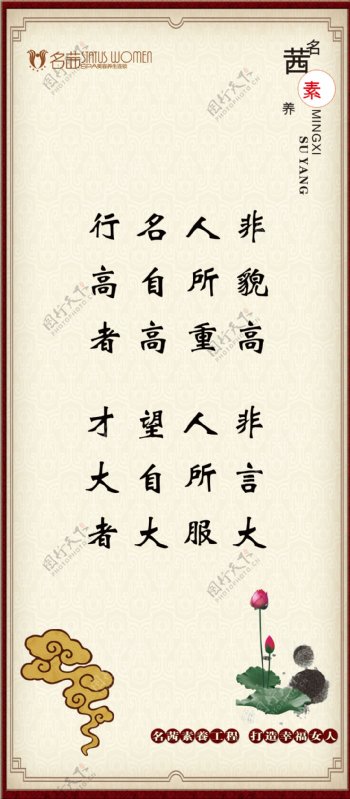 名茜 STATUS WOMEN
名茜素养
MINGXI
SU YANG
行高者
名自高
人所重
非貌高
才大者
望自大
人所服
非言大
名茜素養工程 打造幸福女人
图行天下
PHOTOPHOTO.CN